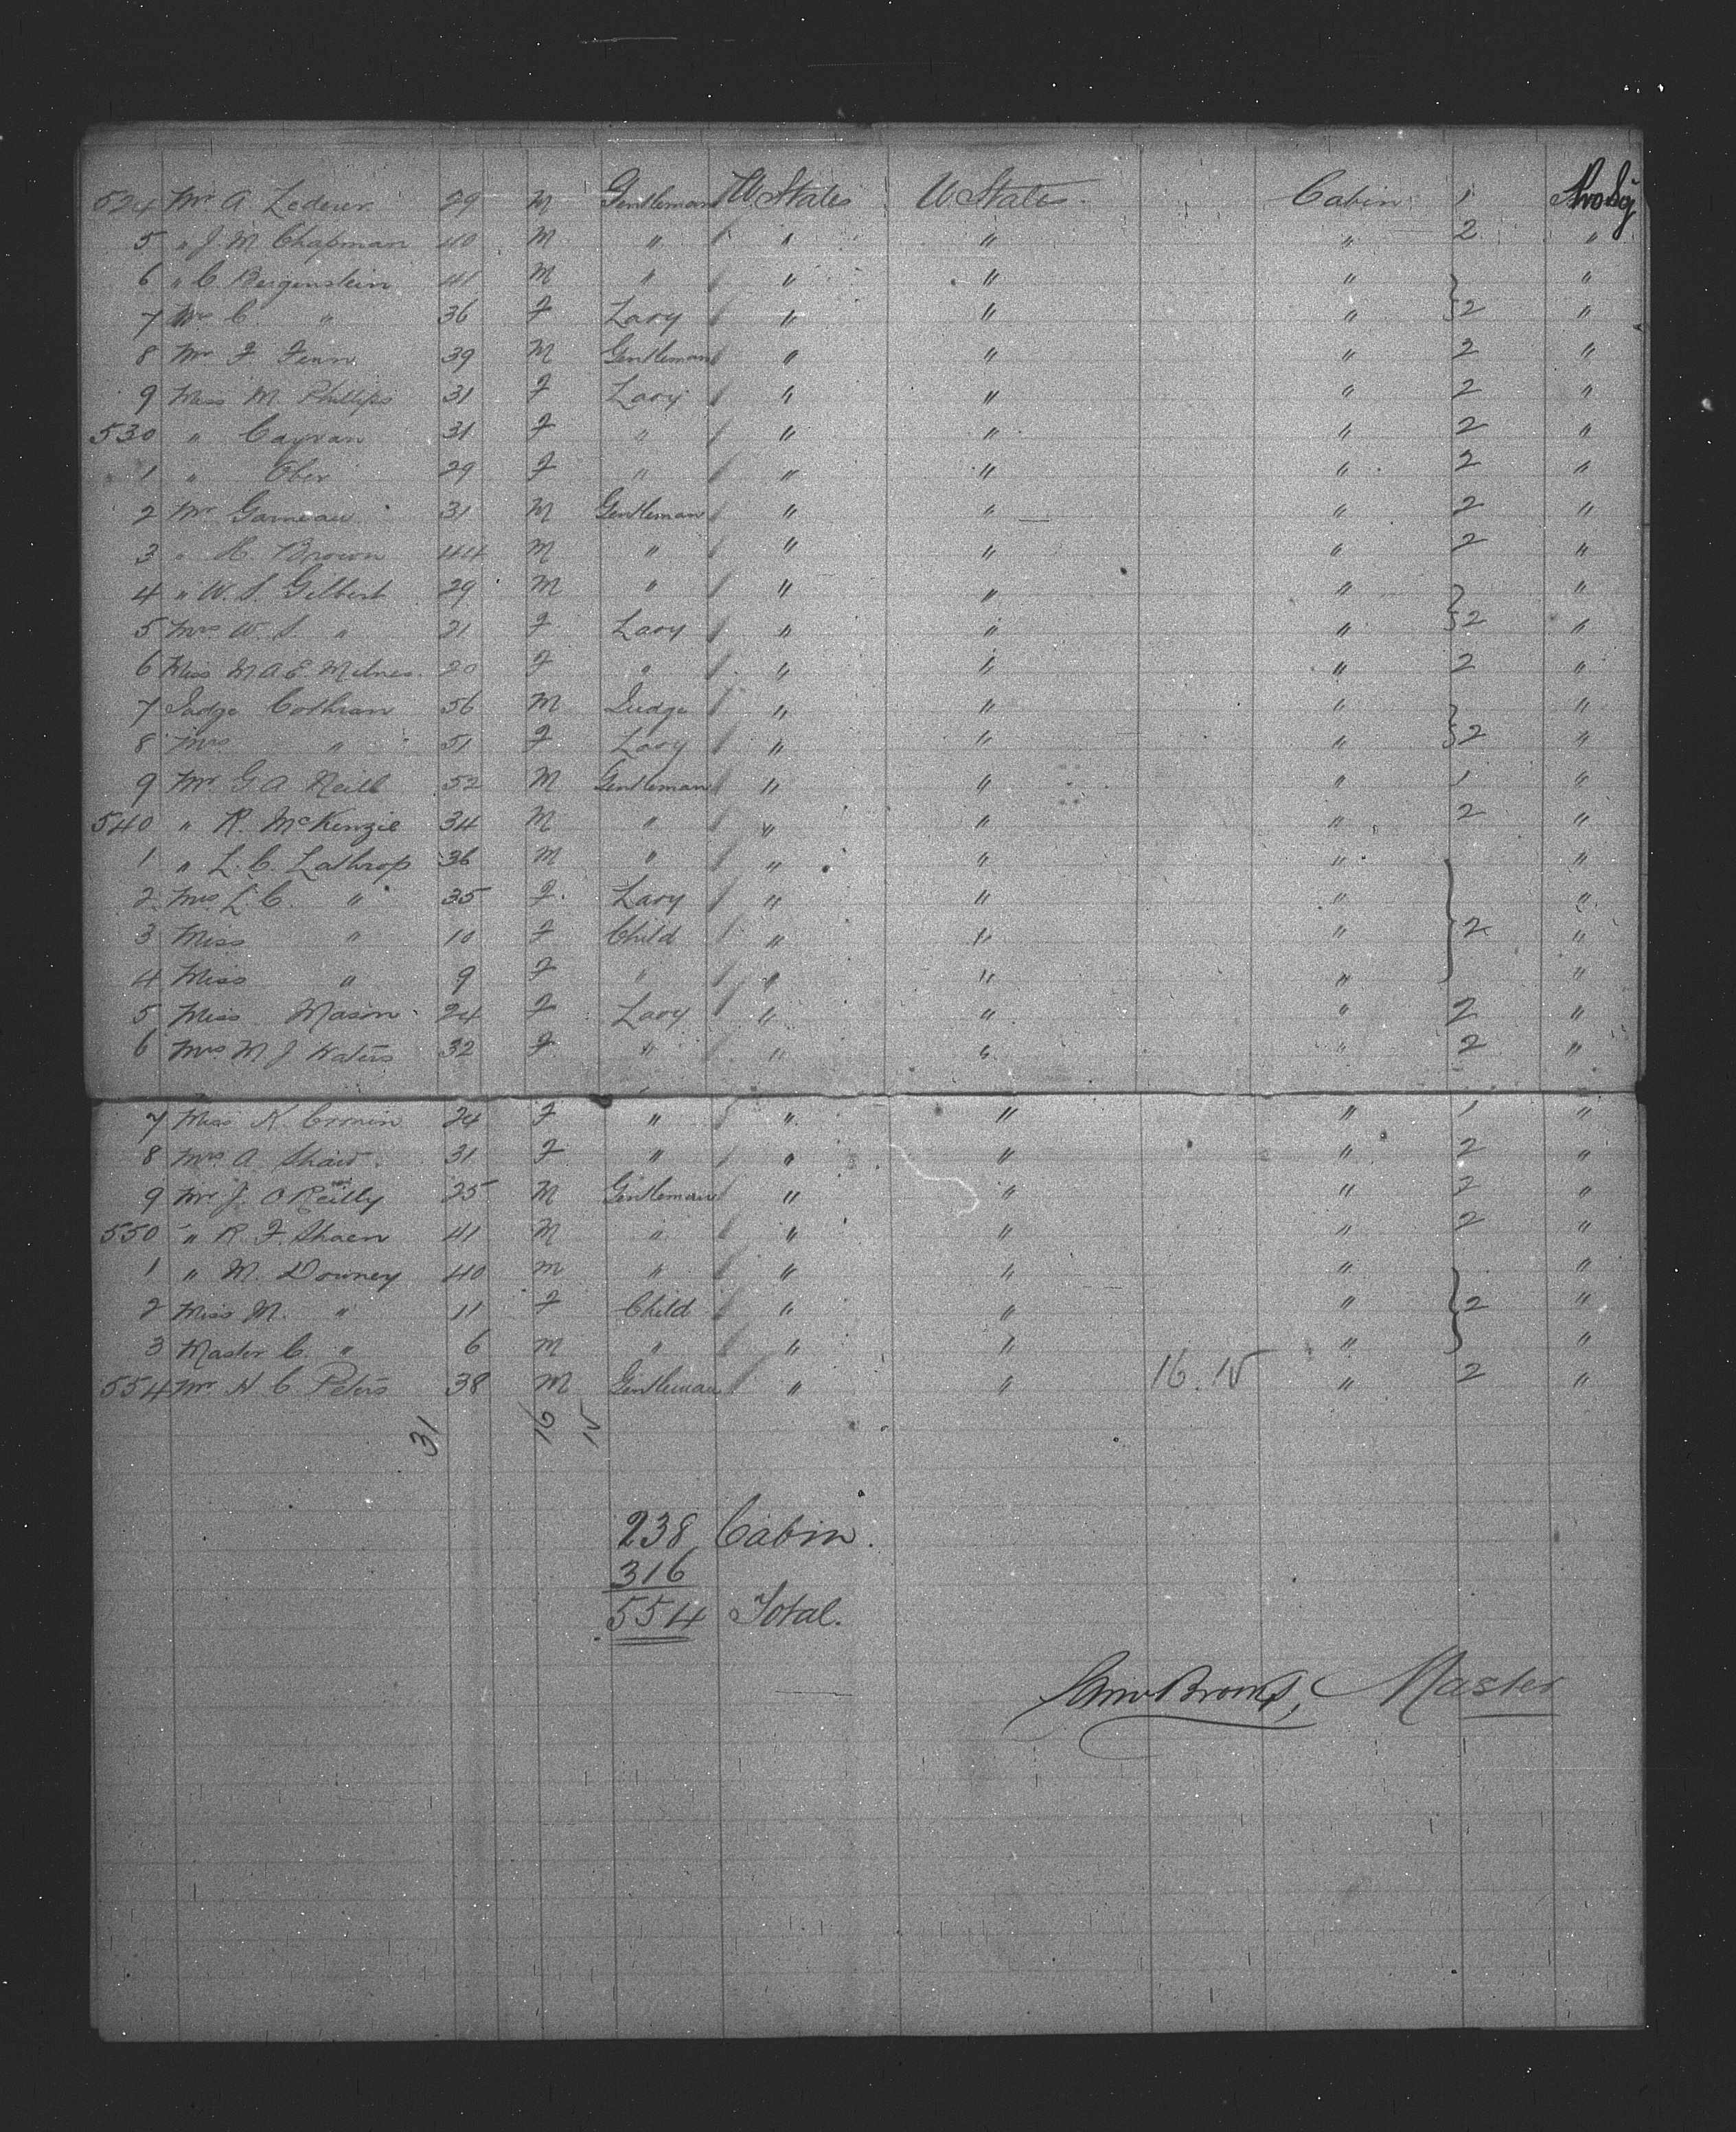 524 Mr A Lederer 29 M Gentleman U States U States Cabin 1
5 " J. M. Chapman 40 M " " " " 2 "
6 " C. Bergenstein 41 M " " " " "
7 Mrs C. " 36 F Lady " " " 2 "
8 Mr F Fenn 39 M Gentleman " " " 2 "
9 Miss M. Phillips 31 F Lady " " " 2 "
530 " Cayvan 31 F " " " " 2 "
1 " Ober 29 F " " " " 2 "
2 Mr Garneau 31 M Gentleman " " " 2 "
3 " H. Brown 44 M " " " " 2 "
4 " W. S. Gilbert 29 M " " " " "
5 Mrs W. S. " 21 F Lady " " " 2 "
6 Miss M A E Milnes 20 F " " " " 2 "
7 Judge Cothran 56 M Judge " " " "
8 Mrs " 51 F Lady " " " 2 "
9 Mr G. A Neill 52 M Gentleman " " " 1 "
540 " R. McKenzie 34 M " " " " 2 "
1 " L. C. Lathrop 36 M " " " " "
2 Mrs L C. " 35 F. Lady " " " "
3 Miss " 10 F Child " " " 2 "
4 Miss " 9 F " " " " "
5 Miss Mason 24 F Lady " " " 2 "
6 Mrs M J Waters 32 F " " " " 2 "
7 Miss K. Cronin 24 F " " " " 1 "
8 Mrs A Shaw 31 F " " " " 2 "
9 Mr J. O'Reilly 25 M Gentleman " " " 2 "
550 " R. F. Shaen 41 M " " " " 2 "
1 " M. Downey 40 M " " " " "
2 Miss M. " 11 F Child " " " 2 "
3 Master C. " 6 M " " " " "
554 Mr H C Peters 38 M Gentleman " " 16. 15 " 2 "
31 16 15
238 Cabin.
316
554 Total.
Master